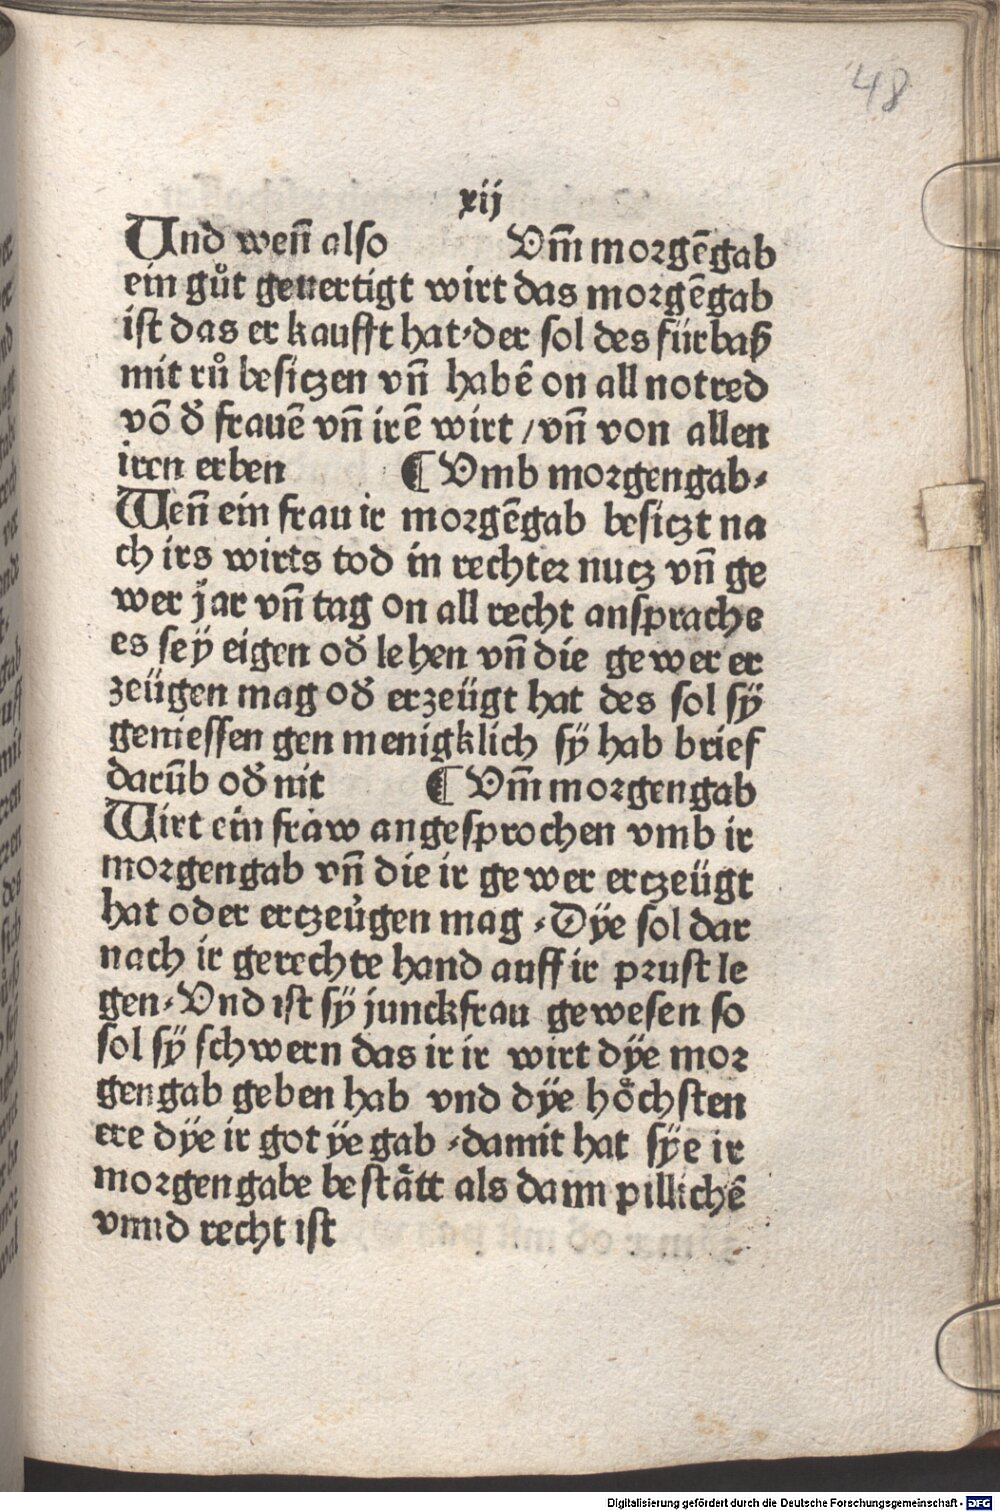 48
xij
Und weñ also Vm̄ morgēgab
ein gůt geuertigt wirt das morgēgab
ist das er kaufft hat·der sol des fürbaß
mit rů besiczen vñ habē on all notred
vō đ frauē vñ irē wirt /vñ von allen
iren erben ¶ Vmb morgengab·
Weñ ein frau ir morgēgab besiczt na
ch irs wirts tod in rechter nucz vñ ge
wer jar vñ tag on all recht ansprache
es sey eigen ođ lehen vñ die gewer er
zeügen mag ođ erzeügt hat des sol sÿ
geniessen gen menigklich sÿ hab brief
darūb ođ nit ¶ Vm̄ morgengab
Wirt ein fraw angesprochen vmb ir
morgengab vñ die ir gewer erczeügt
hat oder erczeügen mag ·Dÿe sol dar
nach ir gerechte hand auff ir prust le
gen·Vnd ist sÿ junckfrau gewesen so
sol sÿ schwern das ir ir wirt dÿe mor
gengab geben hab vnd dÿe höchsten
ere dÿe ir got ÿe gab ·damit hat sÿe ir
morgengabe bestätt als dann pillichē
vnnd recht ist
Digitalisierung gefördert durch die Deutsche Forschungsgemeinschaft - DFG